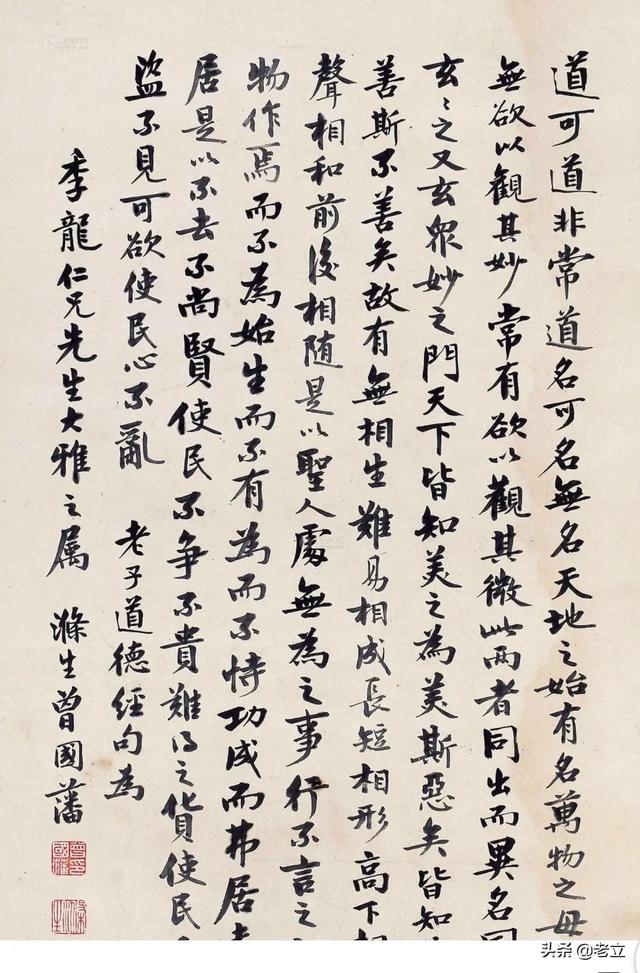 道可道非常道名可名無名天地之始有名萬物之母
無欲以觀其妙常有欲以觀其微此兩者同出而異名同
玄〻之又玄眾妙之門天下皆知美之為美斯惡矣皆知
善斯不善矣故有無相生難易相成長短相形高下相
聲相和前後相隨是以聖人處無為之事行不言之
物作焉而不為始生而不有為而不恃功成而弗居夫
居是以不去不尚賢使民不争不貴難得之貨使民
盜不見可欲使民心不亂 老子道德經句為
季龍仁兄先生大雅之属 滌生曾國藩
头条 @老立